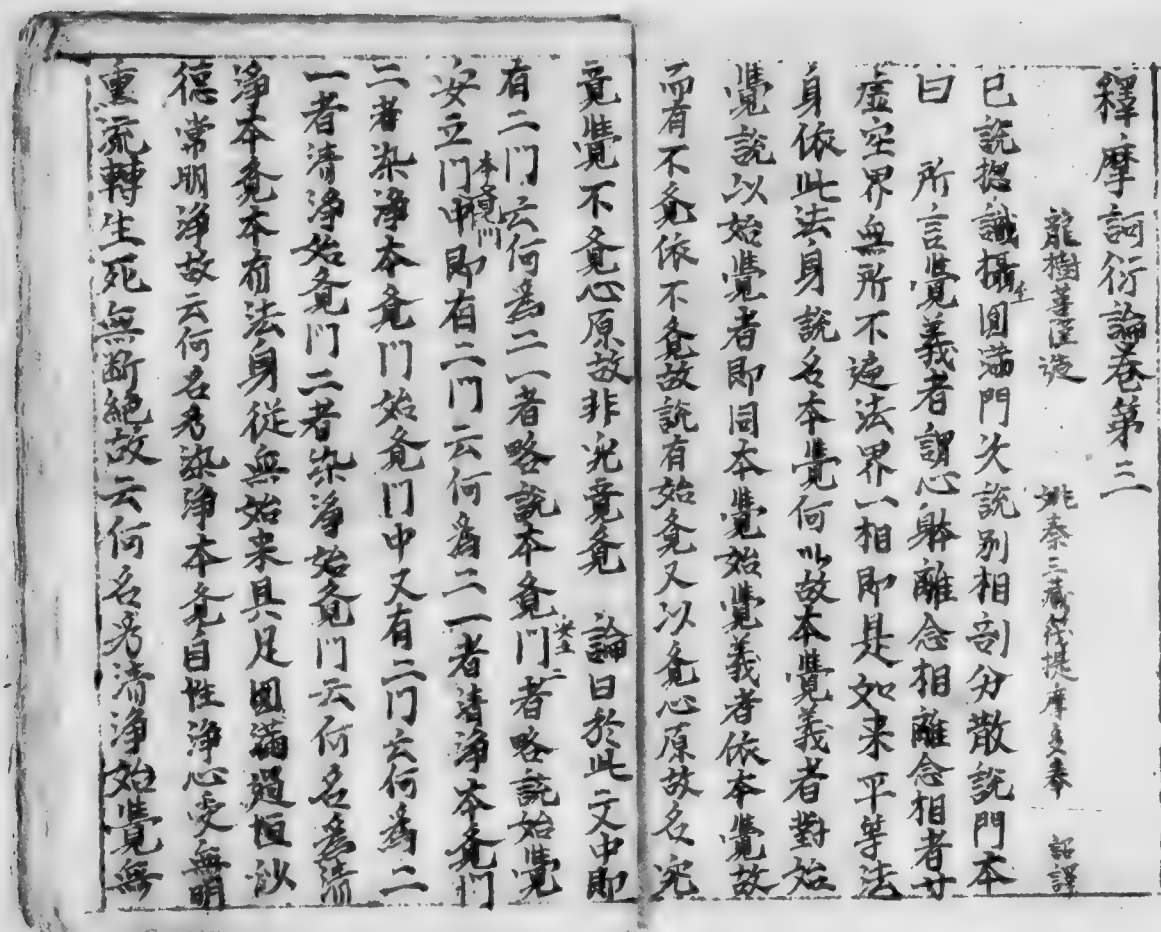 釋摩訶衍論卷第三
龍樹菩薩造 姚秦三藏筏提摩多奉 詔譯
已說揔識攝生圓滿門次說別相剖分散說門本
曰 所言覺義者謂心躰離念相離念相者等
虛空界無所不遍法界一相即是如来平等法
身依此法身說名本覺何以故本覺義者對始
覺說以始覺者即同本覺始覺義者依本覺故
而有不覔依不覔故說有始覔又以覔心原故名究
竟覺不覔心原故非究竟覔 論曰於此文中即
有二門云何為二一者略說本覔門安立二者略說始覺
安立門本覔門中即有二門云何為二一者清淨本覔門
二者染淨本覔門始覔門中又有二門云何為二
一者清淨始覔門二者染淨始覔門云何名為清
淨本覔本有法身從無始来具足圓滿過恒沙
德常明淨故云何名為染淨本覔自性淨心受無明
熏流轉生死無断絕故云何名為清淨始覺無